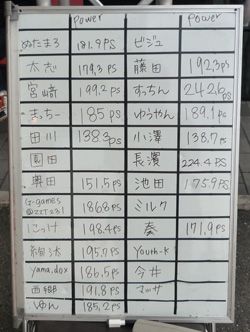 Power Power
ぬたまろ 181.9PS ビジュ
太志 179.3PS 藤田 192.3ps
宮崎 199.2PS すっちん 242.6ps
まっちー 185PS ゆうやん 189.1ps
田川 138.3ps 小澤 138.7ps
園田 長濱 224.4PS
奥田 151.5PS 池田 175.9PS
186.8PS ミルク
にっけ 198.4PS 奏 171.9PS
絢汰 195.7PS Youth-K
yama.dox 186.5PS 今井
西郷 191.8PS マッサ
ゆん 185.2PS